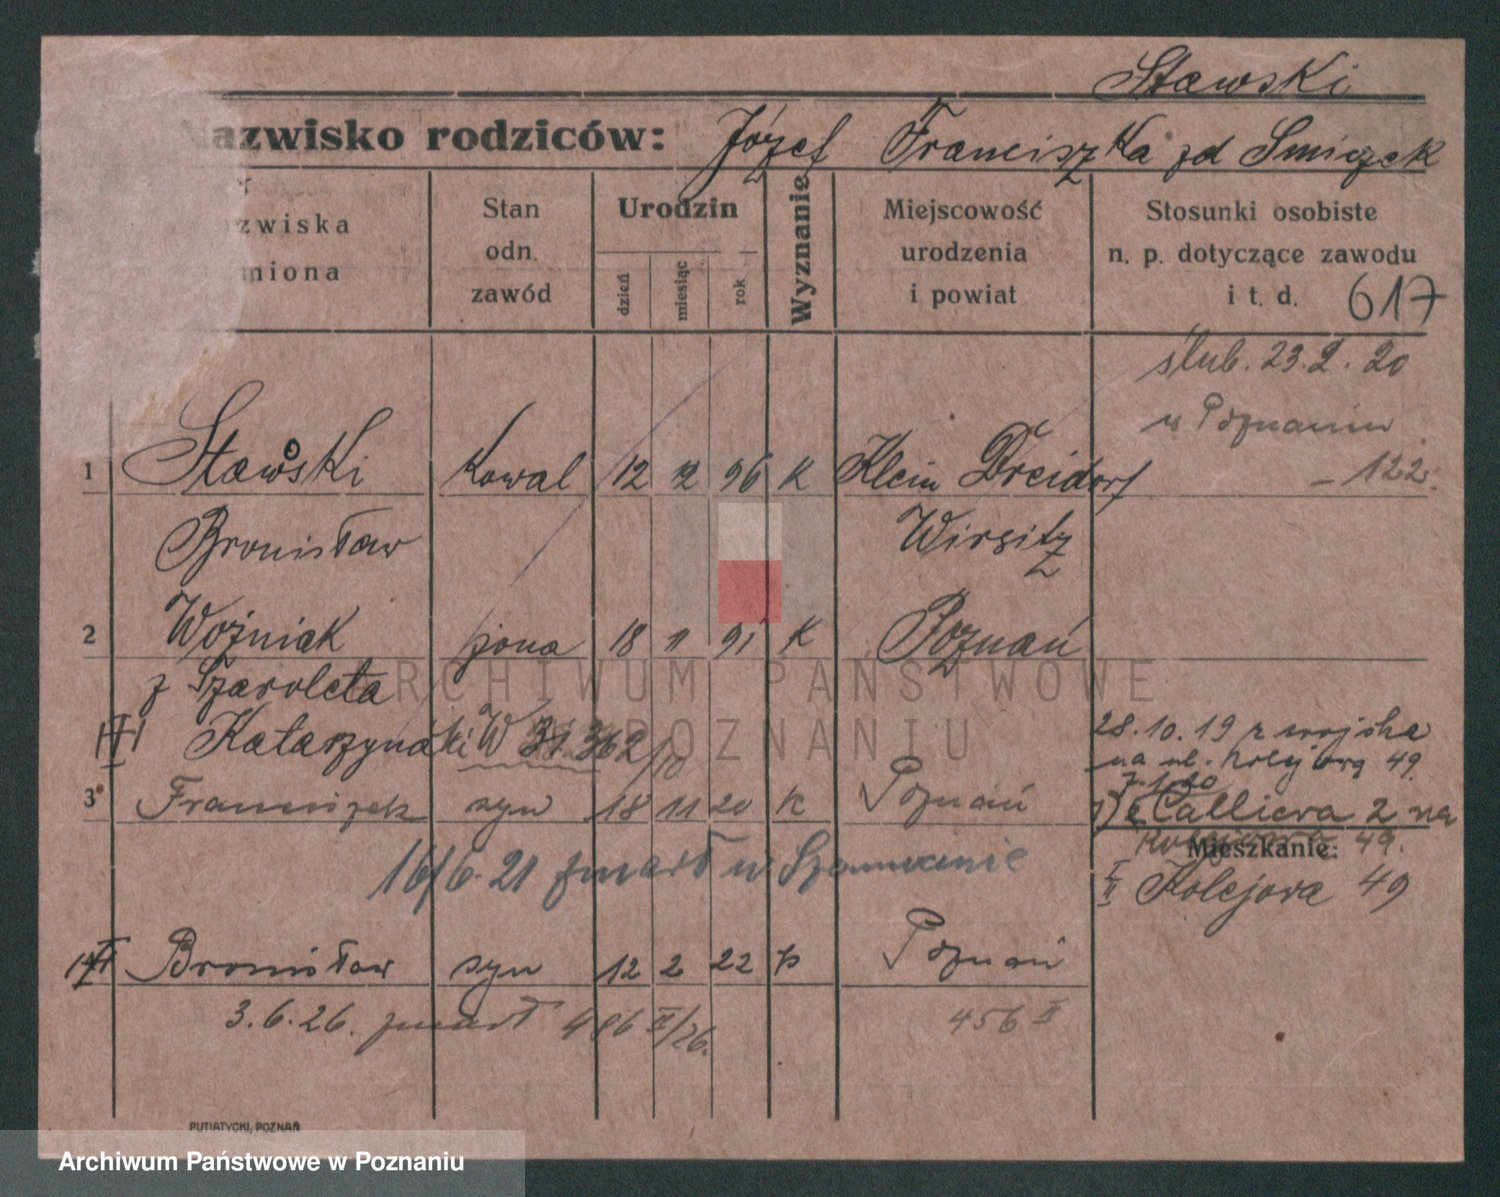 Stawski
Nazwisko rodziców: Józef Franciszka zd Smiczek
zwiska
miona
Stan
odn.
zawód
Urodzin
dzień
miesiąc
rok
Wyznanie
Miejscowość
urodzenia
i powiat
Stosunki osobiste
n. p. dotyczące zawodu
i t. d. 617
ślub. 23.2.20
w Poznaniu
- 122.
1 Stawski kowal 12 12 96 K Klein Dreidorf
Bronisław Wirsitz
2 Woźniak żona 18 11 91 K Poznań
z Szaroleta
Katarzyna
28.10.19 z wojska
na ul. Kolejową 49.
3 Franciszek syn 18 11 20 K Poznań
Calliera 2 na
49.
Mieszkanie:
16/6.21 zmarł w Szamocinie
Kolejowa 49
Bronisław syn 12 2 22 K Poznań
3.6.26. zmarł 486 II/26.
456 II
PUTIATYCKI, POZNAŃ
ARCHIWUM PAŃSTWOWE
POZNANIU
Archiwum Państwowe w Poznaniu